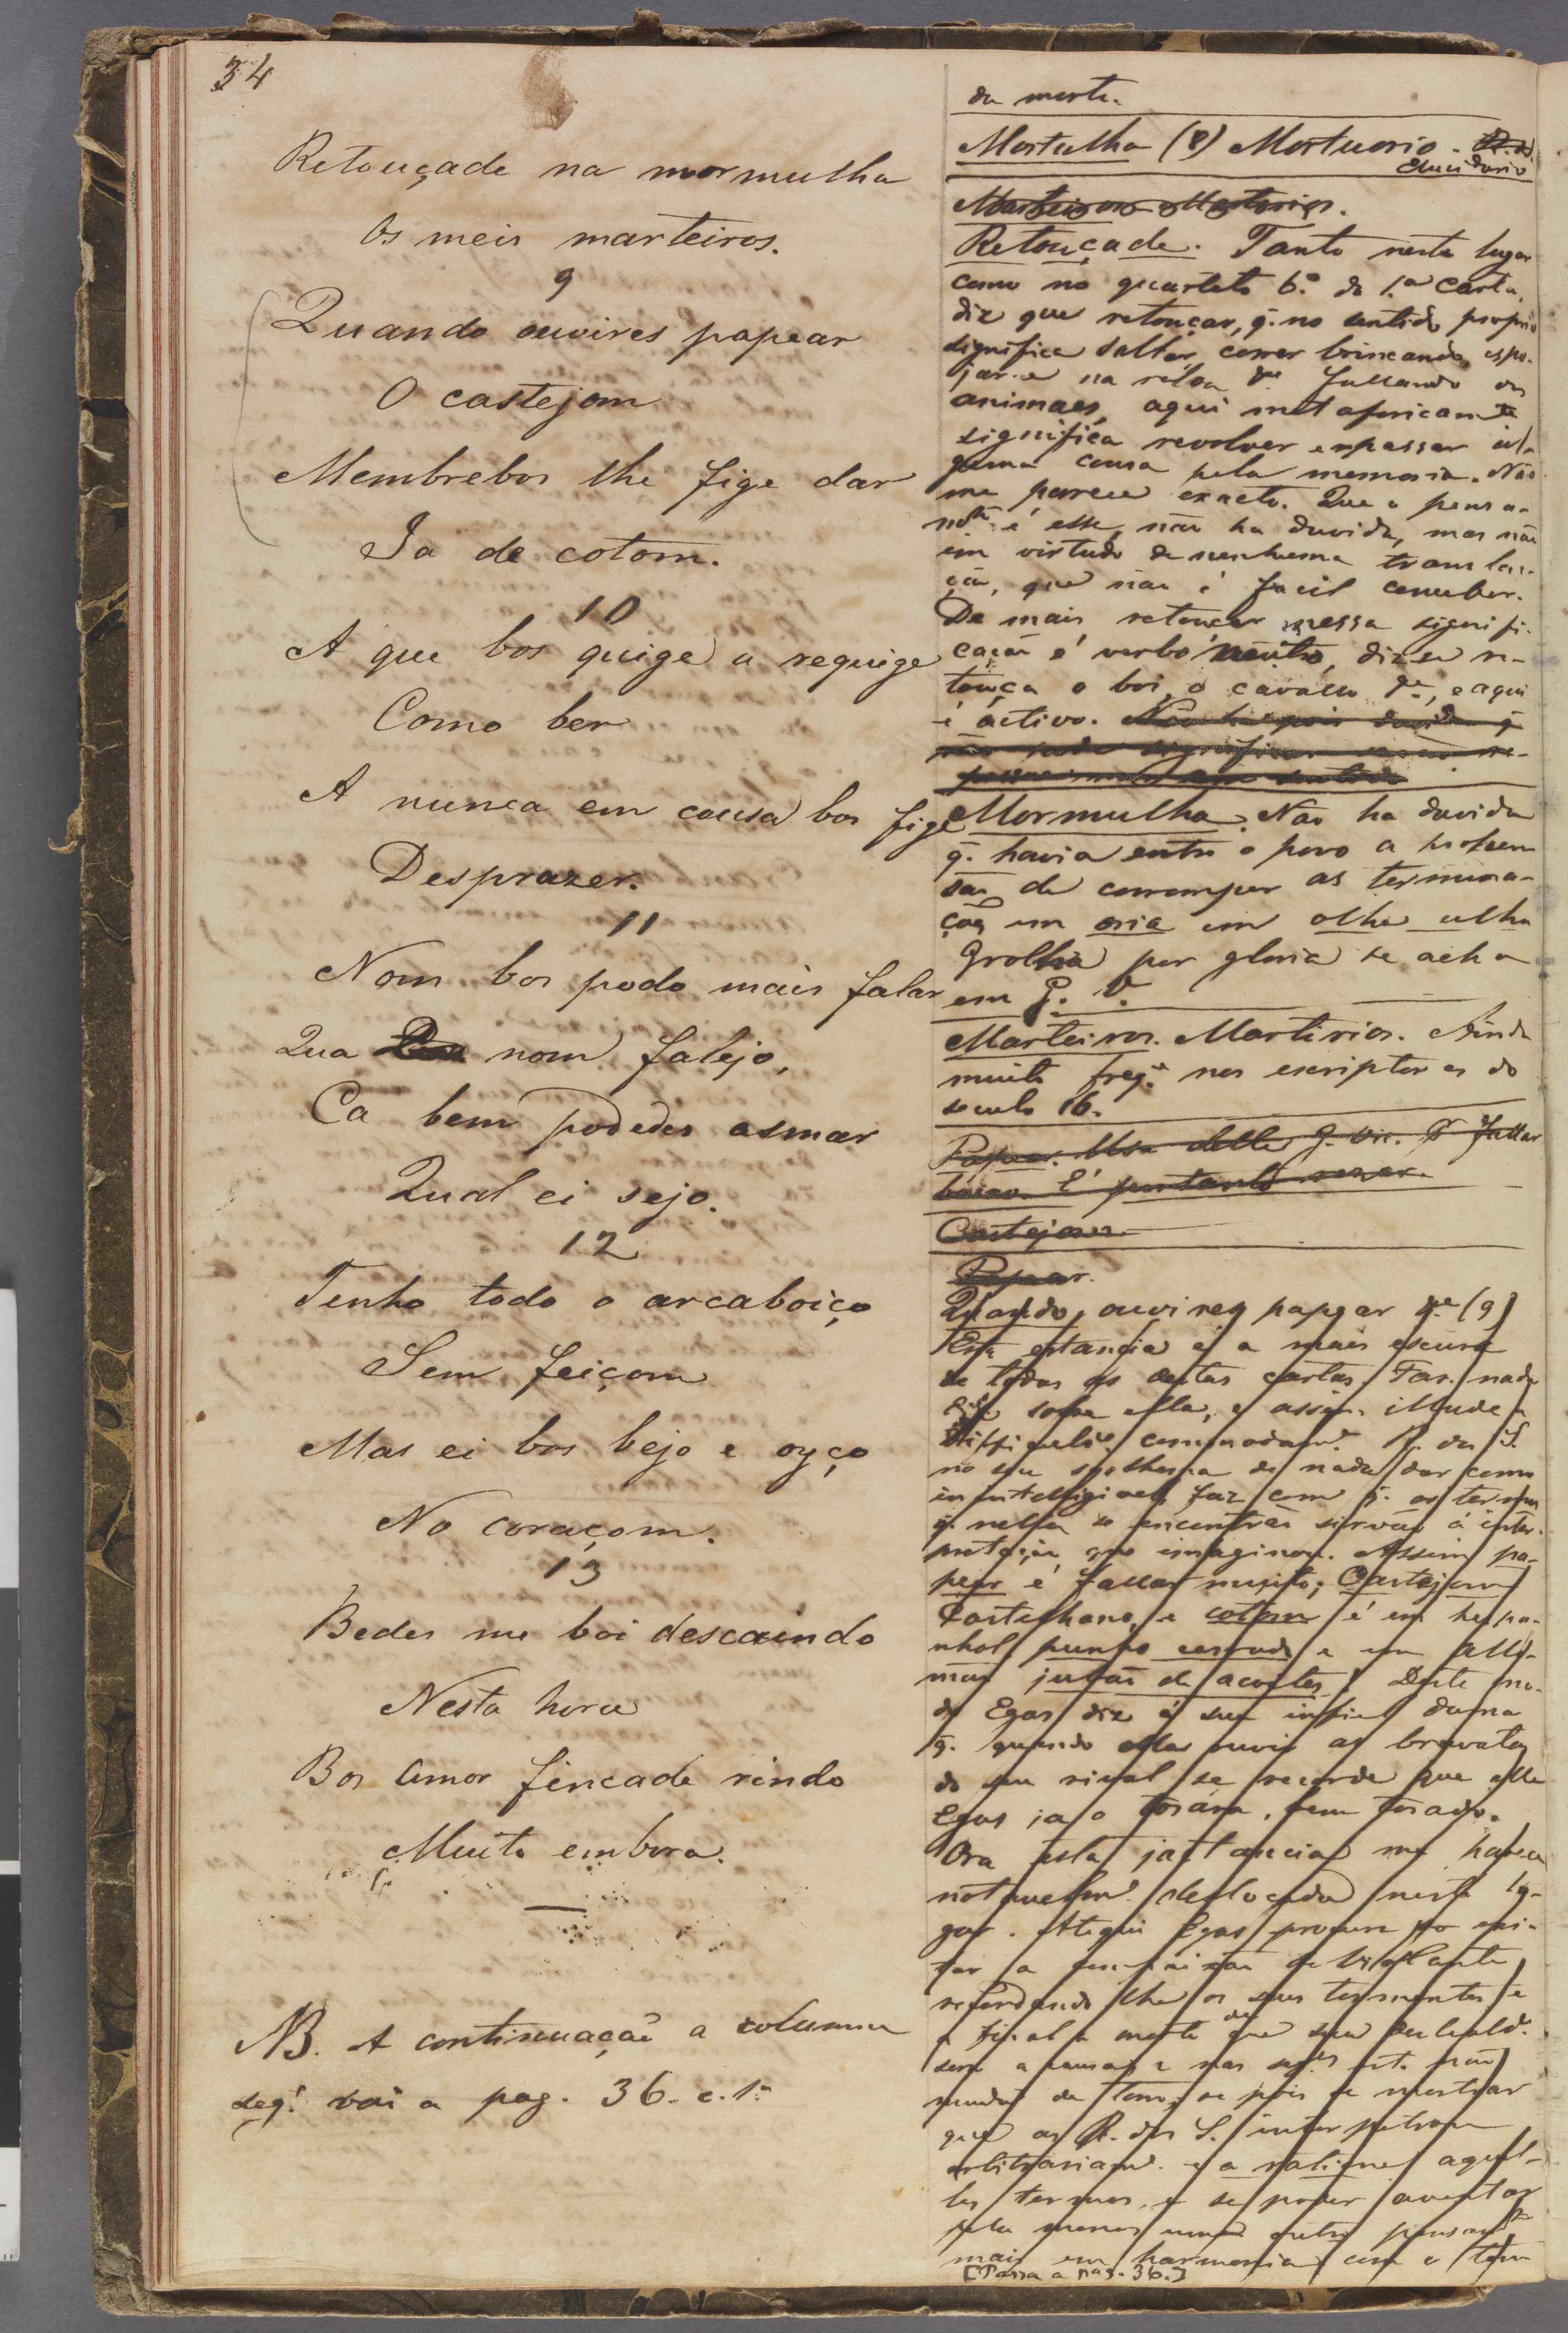 34
Retouçade na mormulha
Os meis marteiros.
9
Quando ouvires papear
O castejom
Membrebos lhe fige dar
Ja de cotom.
10
A que bos quige a requige
Como ber
A nunca em cousa bos fige
Desprazer.
11
Nom bos podo mais falar
Qua nom falejo,
Ca bem podedes asmar
Qual ei sejo.
12
Tenho todo o arcaboiço
Sem feiçom
Mas ei bos bejo e oyço
No coraçom.
13
Bedes me boi descaindo
Nesta hora
Bos amor fincade rindo
Muito embora.
NB. A continuação a columna
seg.e vai a pag. 36. c. 1ª
da morte.
Mortulha (8) Mortuorio.
Elucidario
Marteiros Martirios.
Retouçade. Tanto neste lugar
como no quarteto 6.º da 1.ª Carta,
diz que retouçar, q. no sentido proprio
significa saltar, correr brincando, espo-
jar-se na relva &.ª fallando dos
animaes, aqui metaforicam.te
significa revolver e repassar al-
guma cousa pela memoria. Não
me parece exacto. Que o pensa-
m.to é esse, não ha duvida, mas não
em virtude de nenhuma transla-
ção, que não é facil conceber.
De mais retouçar nessa signifi-
cação é verbo neutro, diz-se re-
touça o boi, o cavallo &.ª, e aqui
é activo. Não ha pois duvida q
Mormulha. Não ha duvida
q. havia entre o povo a propen-
são de corromper as termina-
ções em oria em olha ulha
Grolha por gloria se acha
em G. V.
Marteiros. Martirios. Ainda
muito freq.e nos escriptores do
seculo 16.
Papear. Usa delle G. Vic. P. fallar
baixo. É portanto rezar.
Castejom
Papear.
Quando ouvires papear &.ª (9)
Esta estancia é a mais escura
de todas as destas cartas. Far. nada
diz sobre ella, e assim illude a
difficuld.e commodam.te R. dos S.
no seu systhema de nada dar como
inintelligivel faz com q. os termos
q. nella se encontrão sirvão á inter-
pretação que imaginou. Assim pa-
pear é fallar muito; Castejom
Castelhano, e cotom é em hespa-
nhol punho cerrado e em alle-
mão
Egas diz á sua infiel dama
q. quando ella ouvir as bravatas
do seu rival se recorde que elle
Egas ja o tosára, bem tosado.
Ora esta jactancia me parece
notavelm.te deslocada neste lu-
gar. Atequi Egas procura
a compaixão de Violante
referindo lhe os seus tormentos e
a final a morte de que sua
será a causa e nas seg.es est. não
muda de tom, se pois se mostrar
que R. dos S. interpetrou
arbitrariam.te e a ratione aquel-
les termos, e se poder aventar
pelo menos um outro pensam.to
mais em harmonia com o tom
[Passa a pag. 36.]